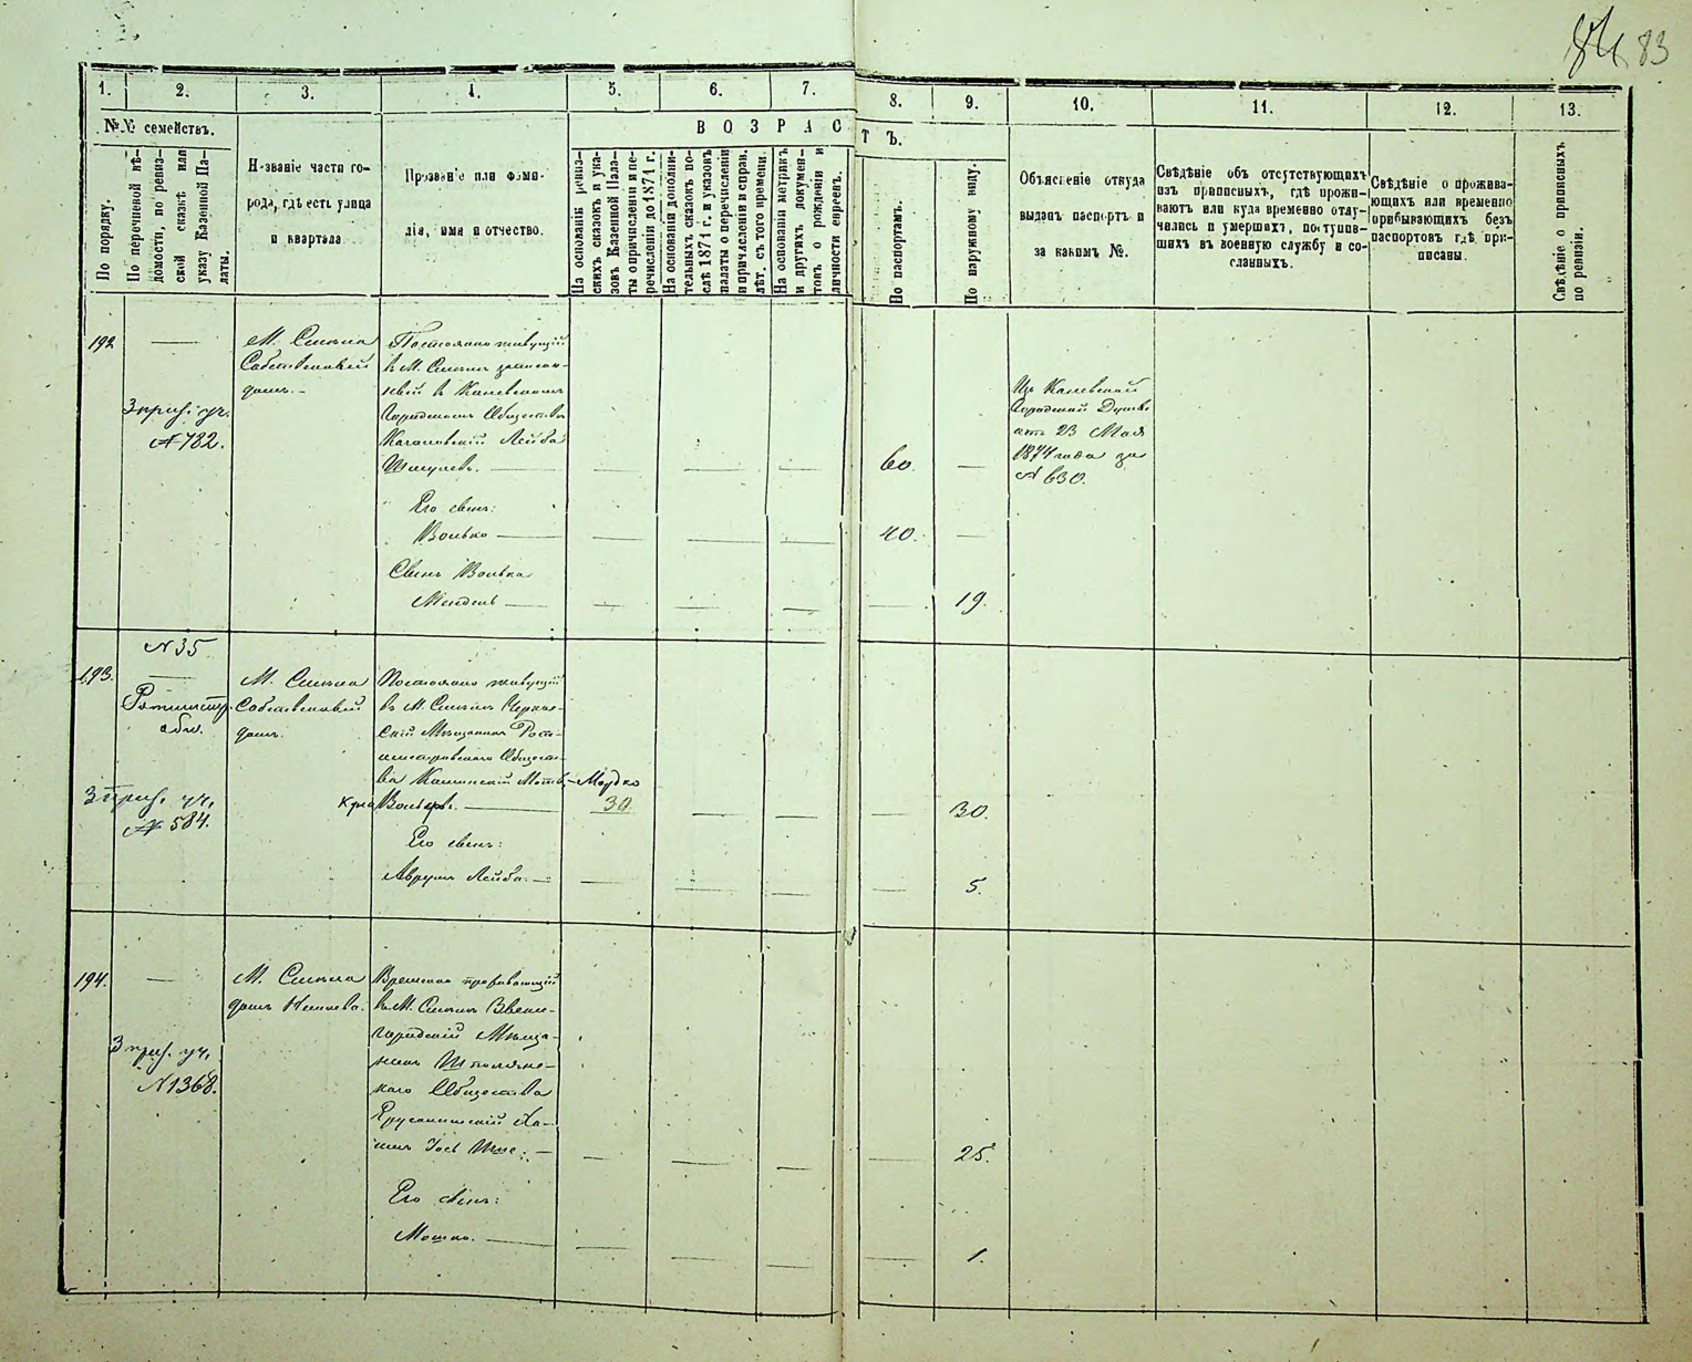 84 83
1. 2. 3. 4. 5. 6. 7. 8. 9. 10. 11. 12. 13.
№№ семействъ.
По порядку.
По перечневой вѣ-
домости, по ревиз-
ской сказкѣ или
указу Казенной Па-
латы.
Названіе части го-
рода, гдѣ есть улица
и квартала
Прозваніе или фами-
лія, имя и отчество.
ВОЗРАСТЪ.
На основаніи ревиз-
скихъ сказокъ и ука-
зовъ Казенной Пала-
ты о причисленіи и пе-
речисленіи до 1871 г.
На основаніи дополни-
тельныхъ сказокъ по-
слѣ 1871 г. и указовъ
палаты о перечисленіи
и причисленіи и справ.
лѣт. съ того времени.
На основаніи метрикъ
и другихъ докумен-
товъ о рожденіи и
личности евреевъ.
По паспортамъ.
По наружному виду.
Объясненіе откуда
выданъ паспортъ и
за какимъ №.
Свѣдѣніе объ отсутствующихъ
изъ приписныхъ, гдѣ прожи-
ваютъ или куда временно отлу-
чились и умершихъ, поступив-
шихъ въ военную службу и со-
сланныхъ.
Свѣдѣніе о прожива-
ющихъ или временно
прибывающихъ безъ
паспортовъ гдѣ при-
писаны.
Свѣдѣніе о приписныхъ
по ревизіи.
192
—
3 приз. уч.
№ 782.
М. Смѣла
Собственный
домъ.-
Постоянно живущій
в М. Смѣлѣ записан-
ный в Каневскомъ
Городскомъ Обществѣ
Кагановскій Лейба
Шмулевъ. — — — — 60. —
Изъ Каневской
Городской Думы
отъ 23 Мая
1874 года за
№ 630.
Его сынъ:
Волько — — — — 40. —
Сынъ Волька
Мендель — — — — — 19.
№ 35
193.
—
Ротмистр.
общ.
3 приз. уч.
№ 584.
М. Смѣла
Собственный
домъ.
Постоянно живущій
въ М. Смѣлѣ Черкас-
скій Мѣщанинъ Рот-
мистровскаго Общест-
ва Каминскій - Мордко
Вольковъ. — 30. — — 30.
Его сынъ:
Аврумъ Лейба. — — — — — 5.
194.
—
3 приз. уч.
№ 1368.
М. Смѣла
домъ
Временно пребывающій
в М. Смѣлѣ Звени-
городскій Мѣща-
нинъ Шполянс-
каго Общества
Ерусалимскій Ха-
имъ Іось — — — — 25.
Его сынъ:
Мошко. — — — — — 1.